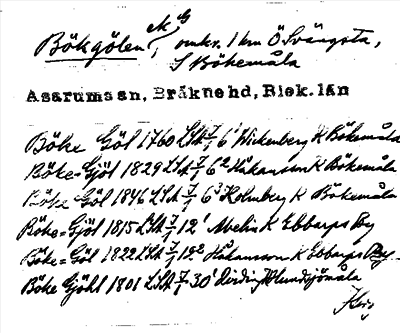 Bökgölen, omkr. 1 km Ö Svängsta,
S Bökemåla
Asarums sn, Bräkne hd, Blek. län
Böke Göl 1760 LSA 7/1 6¹ Wickenberg K Bökemåla
Böke=Gjöl 1829 LSA 7/1 6² Håkansson K Bökemåla
Böke Göl 1846 LSA 7/1 6³ Holmberg K Bökemåla
Böke=Gjöl 1815 LSA 7/1 12¹ Melin K Ebbarps By
Böke=Göl 1822 LSA 7/1 12² Håkansson K Ebbarps By
Böke Gjöhl 1801 LSA 7/1 30¹